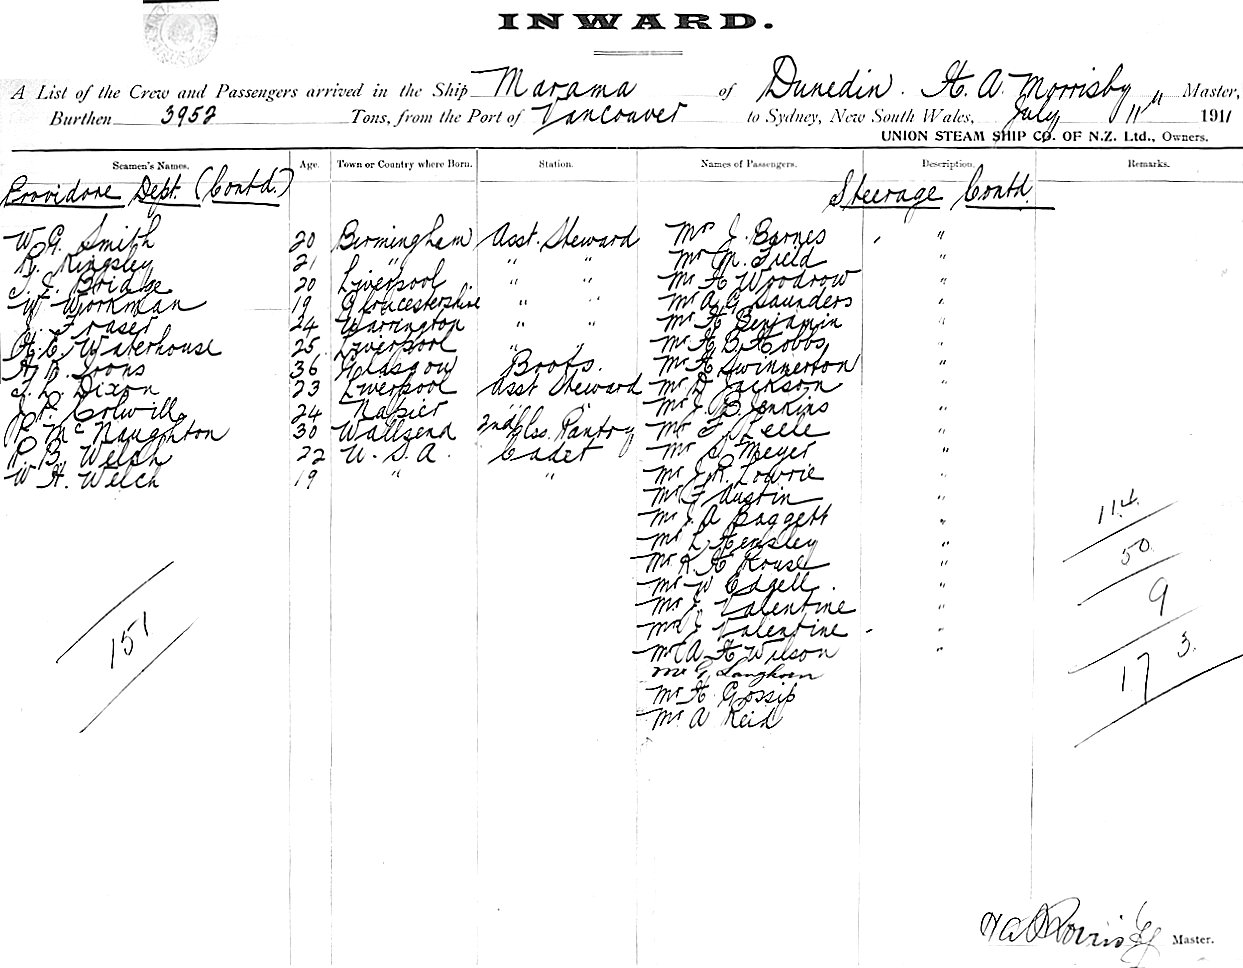 INWARD.
A List of the Crew and Passengers arrived in the Ship Marama of Dunedin. H. A. Morrisby Master,
Burthen 3952 Tons, from the Port of Vancouver to Sydney, New South Wales, July 11" 1911
UNION STEAM SHIP CO. OF N.Z. Ltd., Owners.
Seamen's Names. Age. Town or Country where Born. Station. Names of Passengers. Description. Remarks.
Providore Dept. (Contd.) Steerage Contd.
W. G. Smith 20 Birmingham Asst. Steward Mr J. Barnes "
R. Kingsley 21 " " " Mr M. Field "
Bridge 20 Liverpool " " Mr H Woodrow "
W Workman 19 Gloucestershire " " Mr A G Saunders "
J. Fraser 24 Warrington " " Mr H Benjamin "
H. E. Waterhouse 25 Liverpool " " Mr H B Hobbs "
A. B. 36 Glasgow Boots. Mr H Swinnerton "
L. Dixon 23 Liverpool Asst Steward Mr D Jackson "
J. P. Colwill 24 Napier " " Mr J B Jenkins "
R Mc Naughton 30 Wallsend 2nd Clss. Pantry Mr F. "
R. B. Welsh 22 U. S. A. Cadet Mr S. Meyer "
W H. Welch 19 " " Mr J. R. Lowrie "
Mr F Austin "
Mr J. A Baggett "
Mr L Hensley "
Mr K. H Krouse "
Mr W Edgell. "
Mr J. Valentine "
Mr J Valentine "
Mr A H Wilson "
Mr G Langhorn
Mr H. Gossip
Mr A Reid
114
50
9
173
151
H A Morrisby Master.